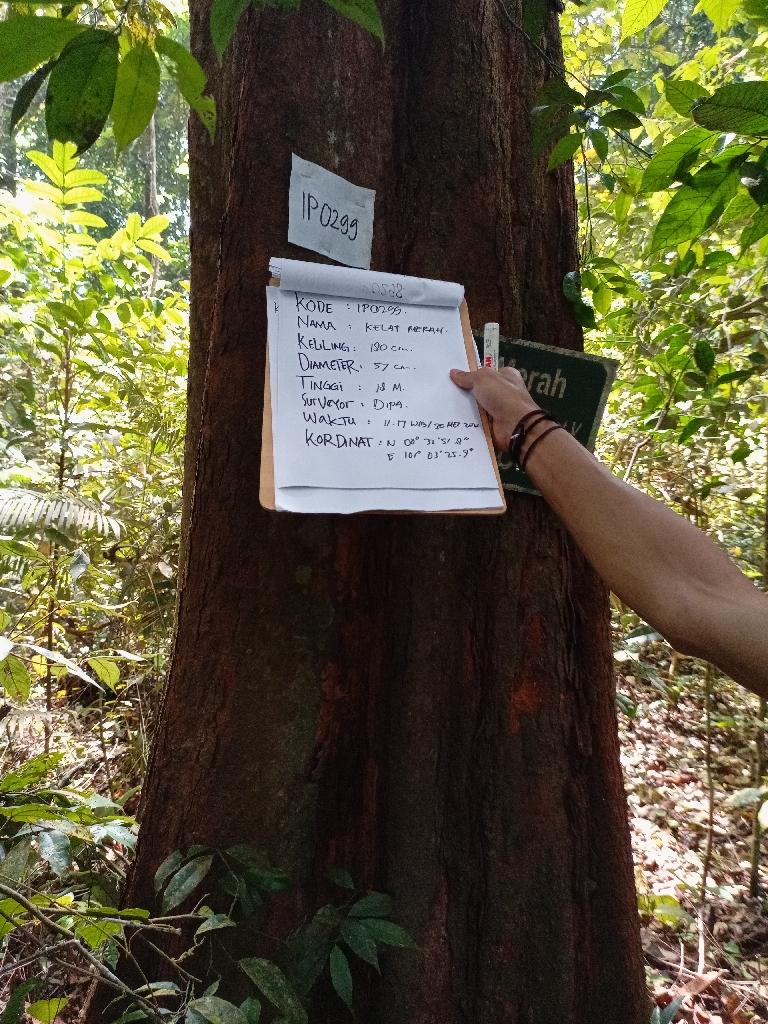 IP0299
KODE : IP0299.
NAMA : KELAT MERAH.
KELILING : 180 cm.
DIAMETER : 57 cm.
TINGGI : 18 M.
SURVEYOR : DIPA.
WAKTU : 11.17 WIB/
KORDINAT : N 00° 
E 101° 03' 25.9"
Merah